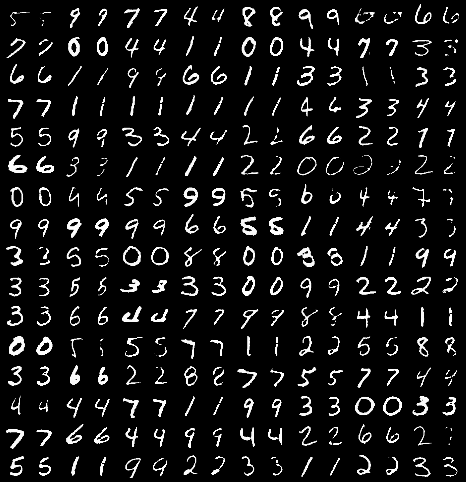 5 5 9 9 7 7 4 4 8 8 9 9 6 6 6 6
7 7 0 0 4 4 1 1 0 0 4 4 7 7 3 3
6 6 1 1 9 9 6 6 1 1 3 3 1 1 3 3
7 7 1 1 1 1 1 1 1 1 4 4 3 3 4 4
5 5 9 9 3 3 4 4 2 2 6 6 2 2 1 1
6 6 3 3 1 1 1 1 2 2 0 0 2 2 2 2
0 0 4 4 5 5 9 9 5 5 6 6 4 4 7 7
9 9 9 9 9 9 6 6 5 5 1 1 4 4 3 3
3 3 5 5 0 0 8 8 0 0 8 8 1 1 9 9
3 3 5 5 3 3 3 3 0 0 9 9 2 2 2 2
3 3 6 6 7 7 9 9 8 8 4 4 1 1
0 0 5 5 5 5 7 7 1 1 2 2 5 5 8 8
3 3 6 6 2 2 8 8 7 7 5 5 7 7 4 4
4 4 4 4 7 7 1 1 9 9 3 3 0 0 3 3
7 7 6 6 4 4 9 9 4 4 2 2 6 6 2 2
5 5 1 1 9 9 2 2 3 3 1 1 2 2 3 3